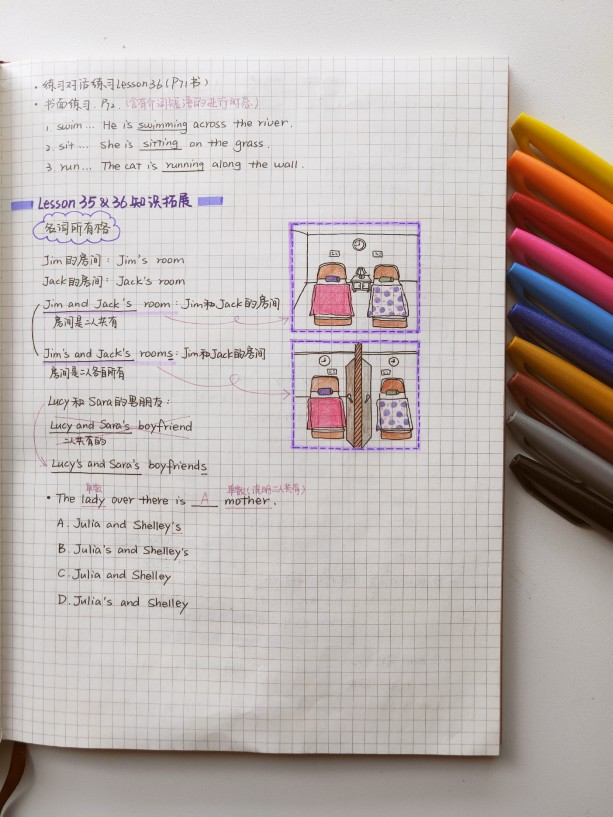 · 练习对话练习Lesson 36 (P71书)
· 书面练习. P72. (含有介词短语的进行时态)
1. swim... He is swimming across the river.
2. sit... She is sitting on the grass.
3. run... The cat is running along the wall.
Lesson 35 & 36 知识拓展
名词所有格
Jim的房间: Jim's room
Jack的房间: Jack's room
Jim and Jack's room: Jim和Jack的房间
房间是二人共有
Jim's and Jack's rooms: Jim和Jack的房间
房间是二人各自所有
Lucy和Sara的男朋友:
Lucy and Sara's boyfriend
二人共有的
Lucy's and Sara's boyfriends
单数 单数(说明二人共有)
· The lady over there is A mother.
A. Julia and Shelley's
B. Julia's and Shelley's
C. Julia and Shelley
D. Julia's and Shelley